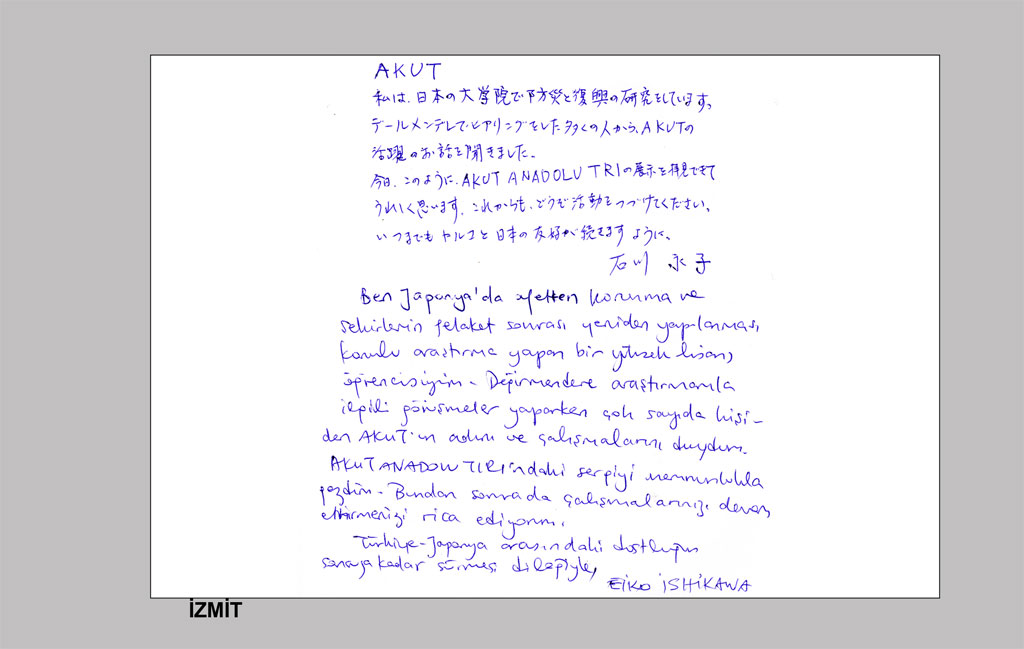 AKUT
私は、日本の大学院で防災と復興の研究をしています。
デールメンデレでヒアリングをした多くの人から、AKUTの
活躍のお話を聞きました。
今日、このように、AKUT ANADOLU TIRIの展示を拝見できて
うれしく思います。これからも、どうぞ活動をつづけてください。
いつまでもトルコと日本の友好が続きますように。
石川 永子
Ben Japonya'da afetten korunma ve
şehirlerin felaket sonrası yeniden yapılanması
konulu araştırma yapan bir yüksek lisans
öğrencisiyim. Değirmendere araştırmamla
ilgili görüşmeler yaparken çok sayıda kişi-
den AKUT'un adını ve çalışmalarını duydum.
AKUT ANADOLU TIRI'ndaki sergiyi memnunlukla
gezdim. Bundan sonra da çalışmalarınızı devam
ettirmenizi rica ediyorum.
Türkiye-Japonya arasındaki dostluğun
sonsuza kadar sürmesi dileğiyle,
EİKO İSHİKAWA
İZMİT